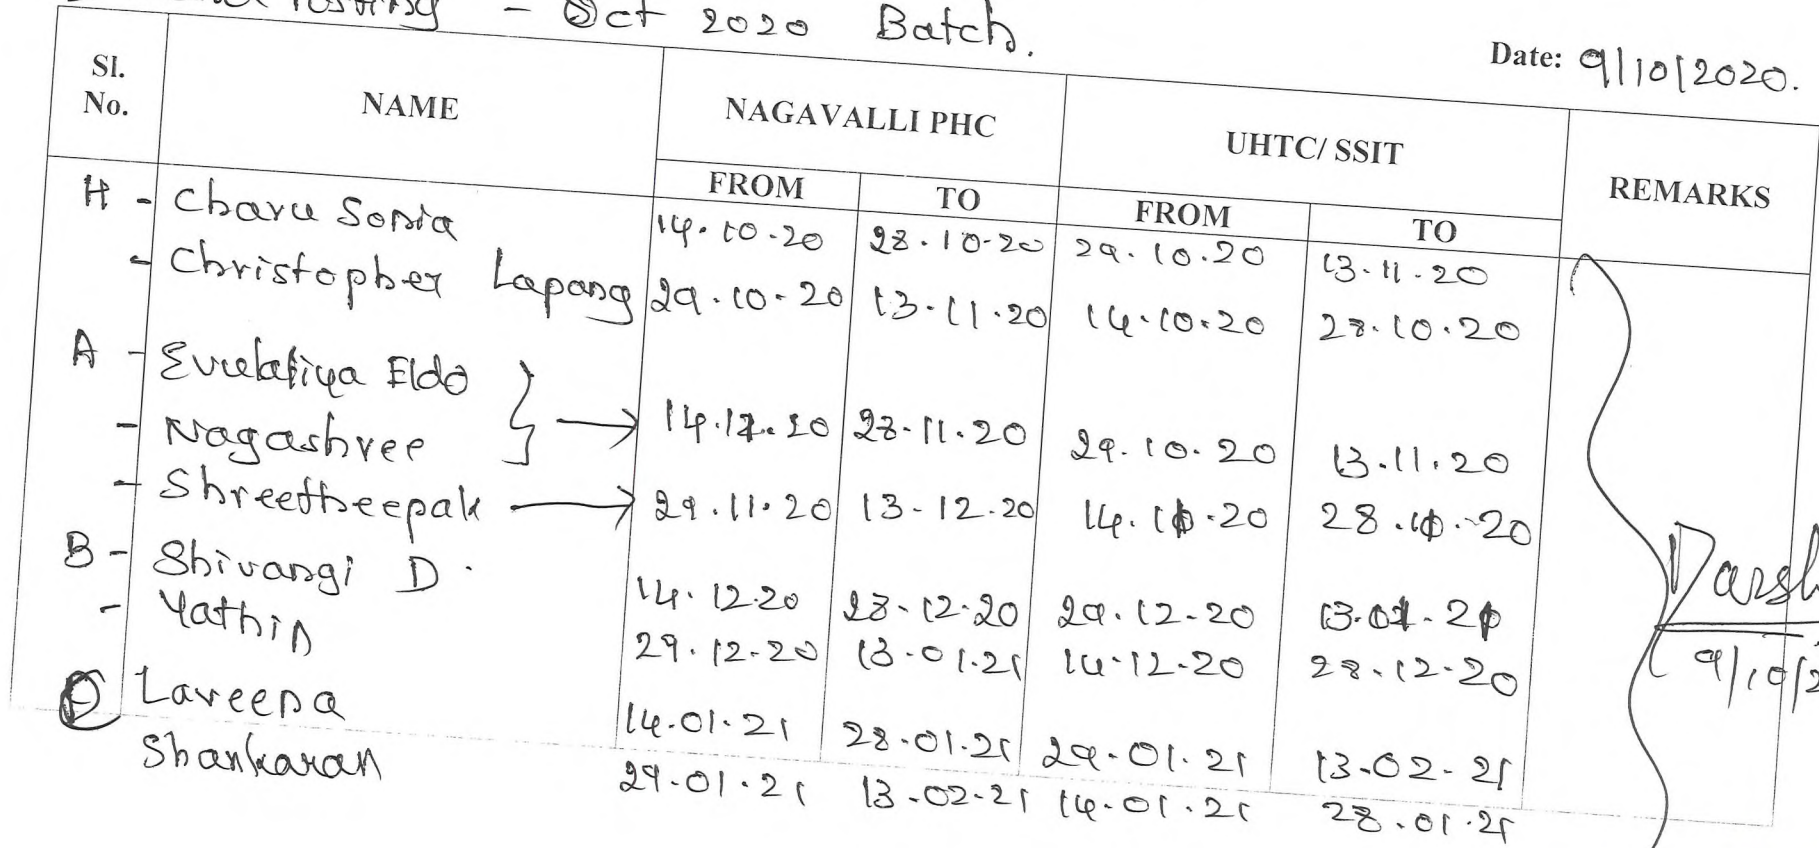 Posting - Oct 2020 Batch.
Date: 9/10/2020.
Sl. No. NAME NAGAVALLI PHC UHTC/ SSIT REMARKS
FROM TO FROM TO
H - Charu Sonia 14.10.20 28.10.20 29.10.20 13.11.20
- Christopher Lapang 29.10.20 13.11.20 14.10.20 28.10.20
A - Evulafiya Eldo
- Nagashree 28.11.20 29.10.20 13.11.20
- Shreetheepak 29.11.20 13-12-20 14. .20 28. .20
B - Shivangi D. 14.12.20 28.12.20 29.12.20 13.01.21
- Yathin 29.12.20 13.01.21 14.12.20 28.12.20
Laveena 14.01.21 28.01.21 29.01.21 13.02.21
Shankaran 29.01.21 13.02.21 14.01.21 28.01.21
Darsh
9/10/2